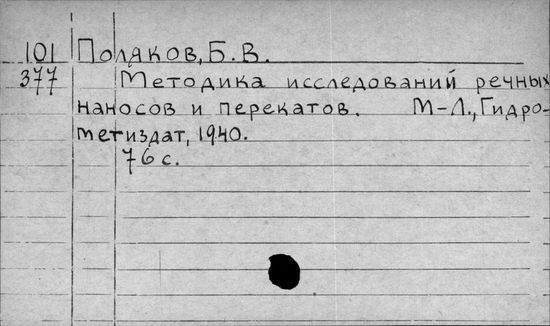 101 Поляков, Б. В.
377 Методика исследований речных
наносов и перекатов. М-Л., Гидро-
метиздат, 1940.
76 с.